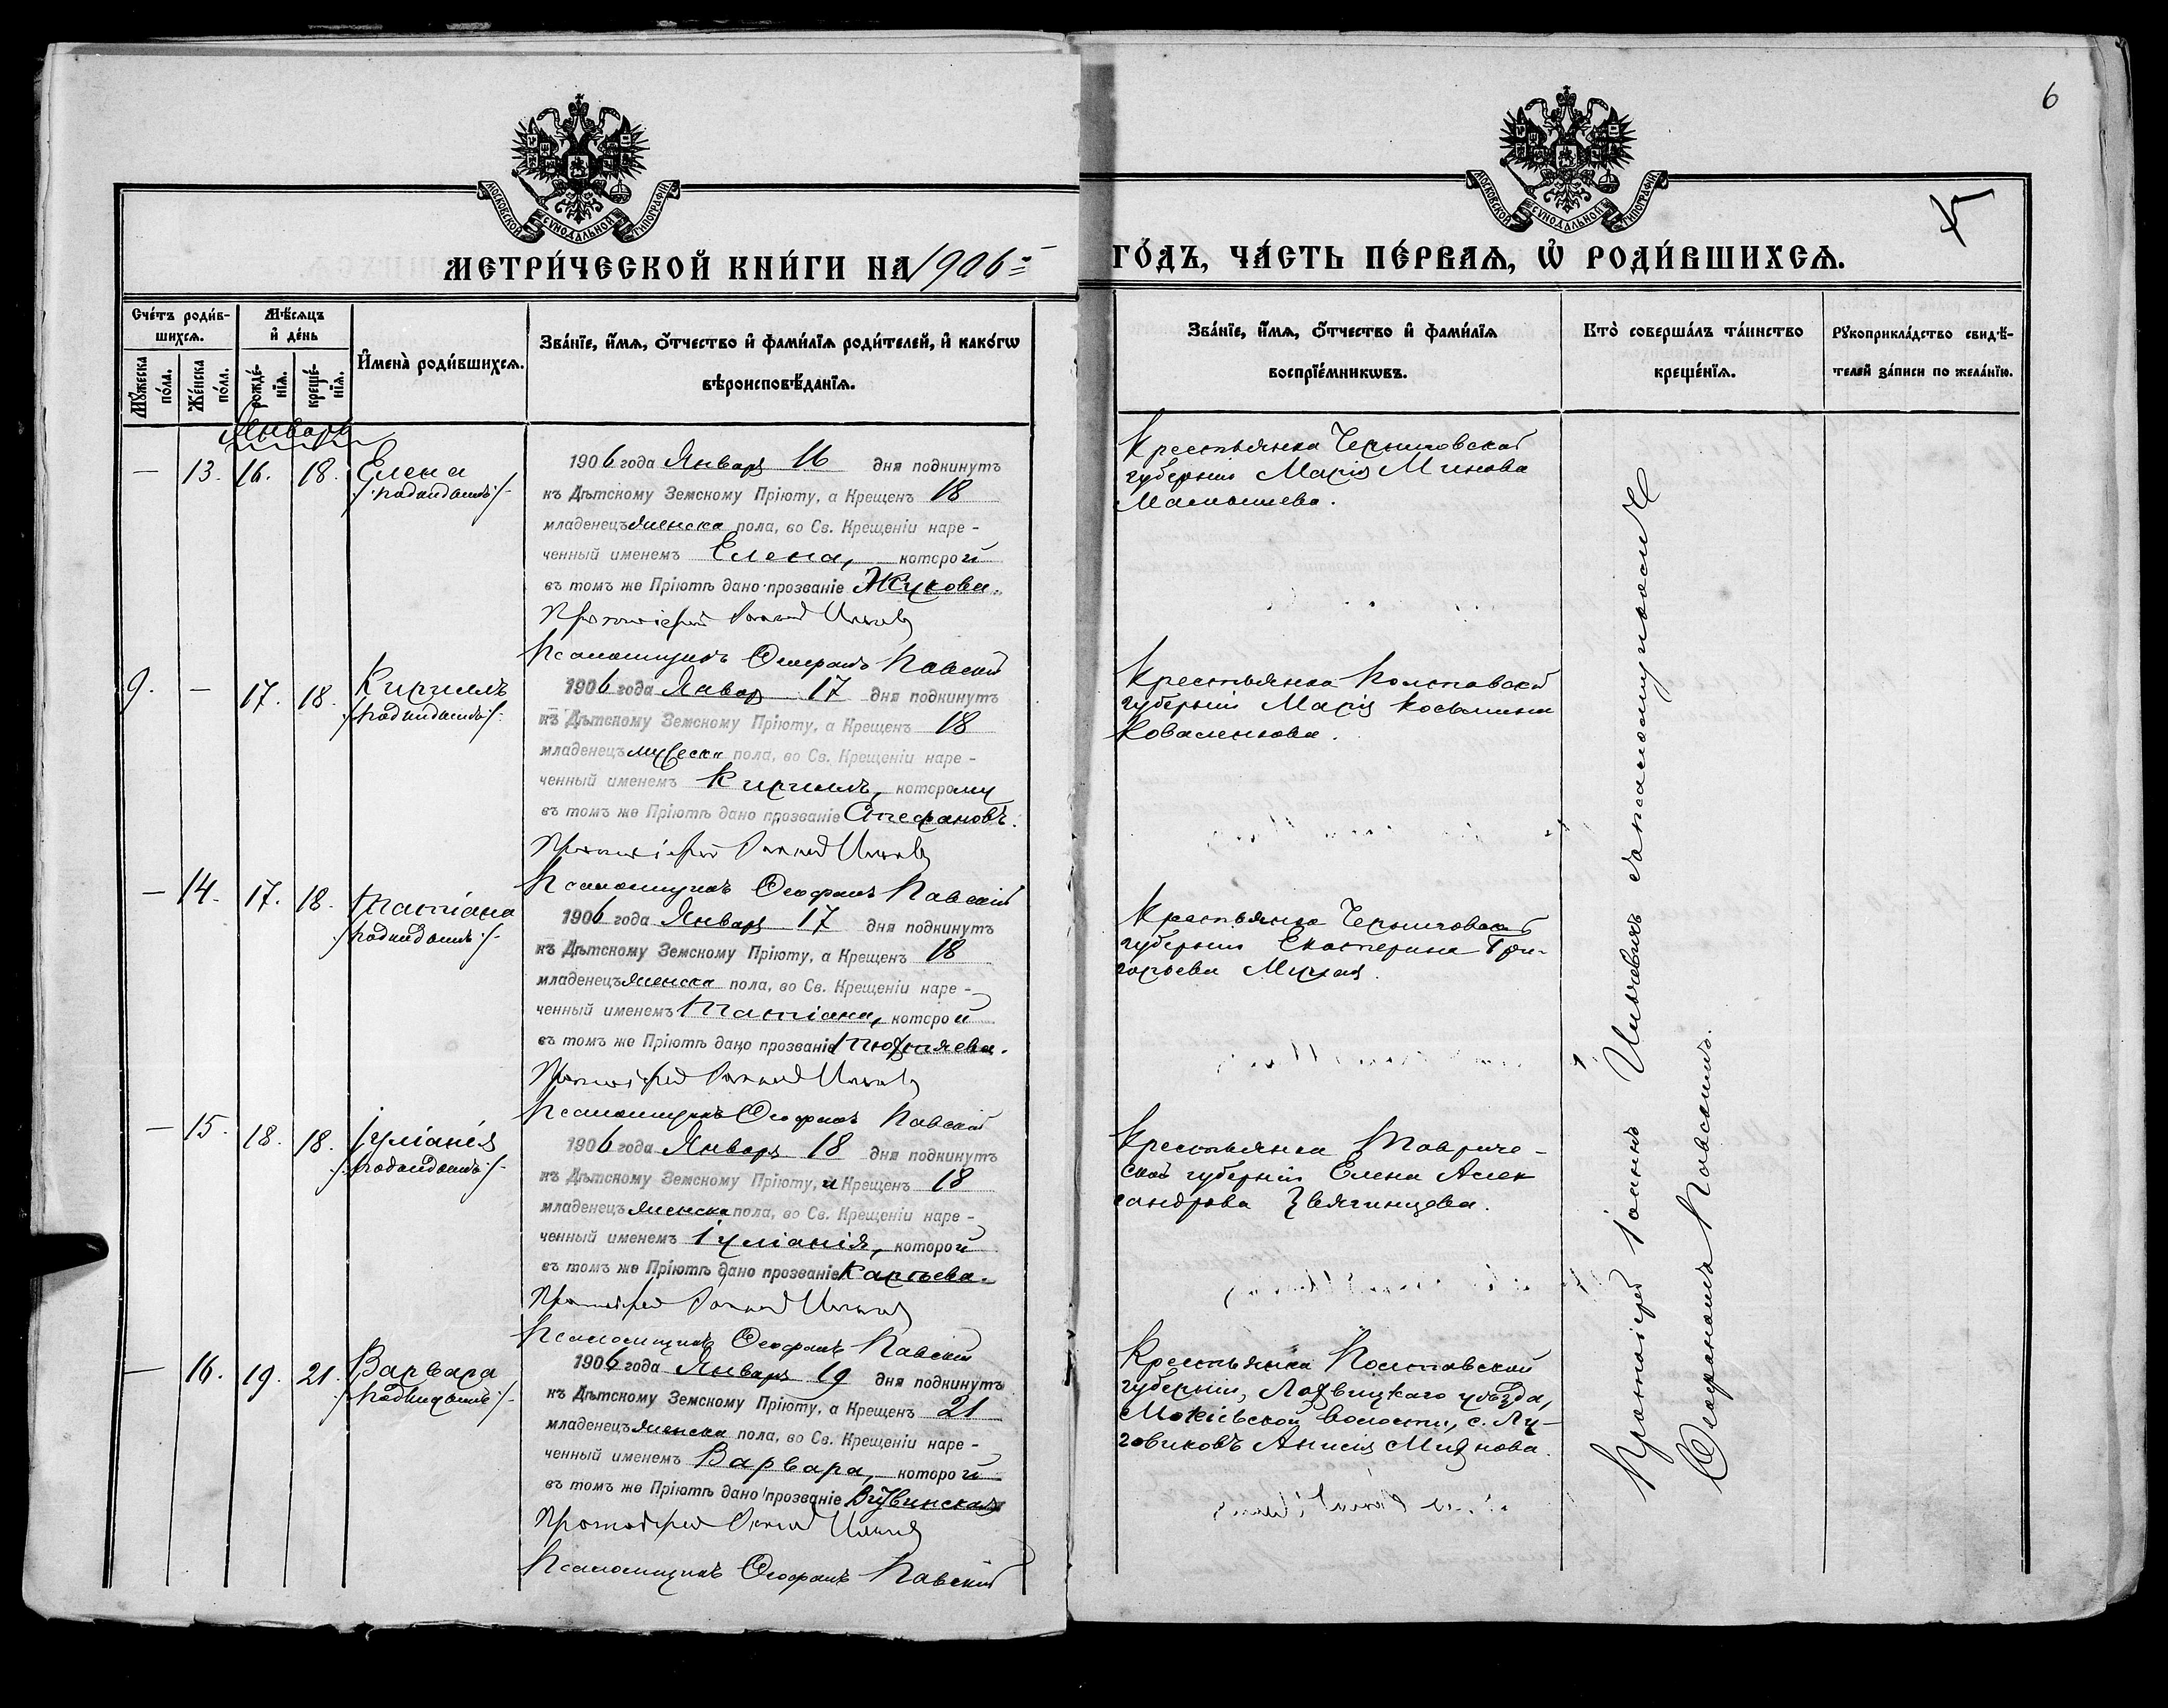 6
МОСКОВСКОЙ СѴНОДАЛЬНОЙ ТИПОГРАФІИ
МОСКОВСКОЙ СѴНОДАЛЬНОЙ ТИПОГРАФІИ
МЕТРИ́ЧЕСКОЙ КНИ́ГИ НА 1906
ГО́ДЪ, ЧА́СТЬ ПЕ́РВАѦ, Ѡ҆ РОДИ́ВШИХСѦ.
Сче́тъ роди́в-
шихсѧ.
Мѣ́сѧцъ
и҆ де́нь
Мꙋ́жеска по́ла.
Же́нска по́ла.
рожде́-нїѧ.
креще́-нїѧ.
И҆мена̀ роди́вшихсѧ.
Зва́нїе, и҆́мѧ, ѻ҆́тчество и҆ фами́лїѧ роди́телей, и҆ како́гѡ
вѣроисповѣ́данїѧ.
Зва́нїе, и҆́мѧ, ѻ҆́тчество и҆ фами́лїѧ
воспрїе́мникѡвъ.
Кто̀ соверша́лъ та́инство
креще́нїѧ.
Рꙋкоприкла́дство свидѣ́-
телей за́писи по жела́нїю.
Январь
— 13. 16. 18. Елена
/:подкидышъ:/
1906 года Января 16 дня подкинутъ
къ Дѣтскому Земскому Пріюту, а Крещенъ 18
младенецъ женска пола, во Св. Крещеніи наре-
ченный именемъ Елена, которой
въ томъ же Пріютѣ дано прозваніе Жукова.
Протоіерей Іоаннъ
Псаломщикъ Ѳеофанъ Павскій
Крестьянка Черниговской
губерніи Марія Минова
9. — 17. 18. Кириллъ
/:подкидышъ:/
1906 года Января 17 дня подкинутъ
къ Дѣтскому Земскому Пріюту, а Крещенъ 18
младенецъ мужеска пола, во Св. Крещеніи наре-
ченный именемъ Кириллъ, которому
въ томъ же Пріютѣ дано прозваніе Стефановъ.
Протоіерей Іоаннъ
Псаломщикъ Ѳеофанъ Павскій
Крестьянка Полтавской
губерніи Марія Косьмина
Коваленкова.
— 14. 17. 18. Татіана
/:подкидышъ:/
1906 года Января 17 дня подкинутъ
къ Дѣтскому Земскому Пріюту, а Крещенъ 18
младенецъ женска пола, во Св. Крещеніи наре-
ченный именемъ Татіана, которой
въ томъ же Пріютѣ дано прозваніе
Протоіерей Іоаннъ
Псаломщикъ Ѳеофанъ Павскій
Крестьянка Черниговской
губерніи Екатерина Гри-
горьева
— 15. 18. 18. Іуліанія
/:подкидышъ:/
1906 года Января 18 дня подкинутъ
къ Дѣтскому Земскому Пріюту, а Крещенъ 18
младенецъ женска пола, во Св. Крещеніи наре-
ченный именемъ Іуліанія, которой
въ томъ же Пріютѣ дано прозваніе Карпьева.
Протоіерей Іоаннъ
Псаломщикъ Ѳеофанъ Павскій
Крестьянка Тавриче-
ской губерніи Елена Алек
сандрова Звягинцева.
— 16. 19. 21. Варвара
/:подкидышъ:/
1906 года Января 19 дня подкинутъ
къ Дѣтскому Земскому Пріюту, а Крещенъ 21
младенецъ женска пола, во Св. Крещеніи наре-
ченный именемъ Варвара, которой
въ томъ же Пріютѣ дано прозваніе
Протоіерей Іоаннъ
Псаломщикъ Ѳеофанъ Павскій
Крестьянка Полтавской
губерніи, Лохвицкаго уѣзда,
Мокіевской волости, с. Лу-
говиковъ Анисія
Протоіерей Іоаннъ Ильичевичъ съ псаломщикомъ
Ѳеофаномъ Павскимъ.